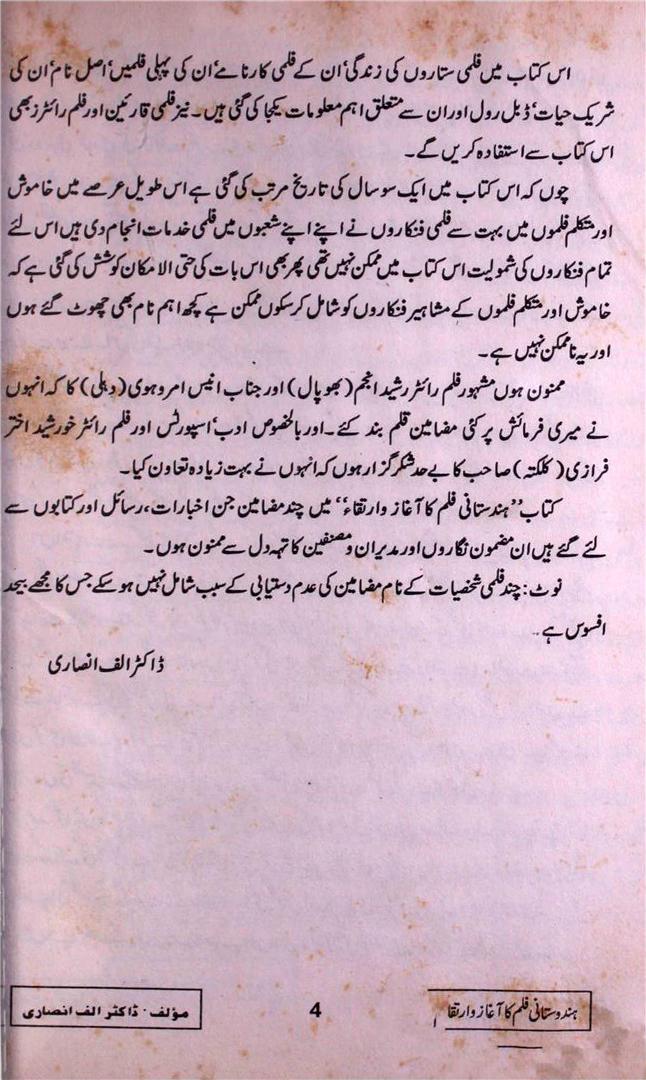 اس کتاب میں فلمی ستاروں کی زندگی، ان کے فلمی کارنامے، ان کی پہلی فلمیں، اصل نام، ان کی
شریک حیات، ڈبل رول اور ان سے متعلق اہم معلومات یکجا کی گئی ہیں۔ نیز فلمی قارئین اور فلم رائٹرز بھی
اس کتاب سے استفادہ کریں گے۔
چوں کہ اس کتاب میں ایک سو سال کی تاریخ مرتب کی گئی ہے اس طویل عرصے میں خاموش
اور متکلم فلموں میں بہت سے فلمی فنکاروں نے اپنے اپنے شعبوں میں فلمی خدمات انجام دی ہیں اس لئے
تمام فنکاروں کی شمولیت اس کتاب میں ممکن نہیں تھی پھر بھی اس بات کی حتی الامکان کوشش کی گئی ہے کہ
خاموش اور متکلم فلموں کے مشاہیر فنکاروں کو شامل کرسکوں ممکن ہے کچھ اہم نام بھی چھوٹ گئے ہوں
اور یہ ناممکن نہیں ہے۔
ممنون ہوں مشہور فلم رائٹر رشید انجم (بھوپال) اور جناب انیس امروہوی (دہلی) کا کہ انہوں
نے میری فرمائش پر کئی مضامین قلم بند کئے۔ اور بالخصوص ادب، اسپورٹس اور فلم رائٹر خورشید اختر
فرازی (کلکتہ) صاحب کا بے حد شکر گزار ہوں کہ انہوں نے بہت زیادہ تعاون کیا۔
کتاب ”ہندستانی فلم کا آغاز و ارتقاء“ میں چند مضامین جن اخبارات، رسائل اور کتابوں سے
لئے گئے ہیں ان مضمون نگاروں اور مدیران و مصنفین کا تہہ دل سے ممنون ہوں۔
نوٹ: چند فلمی شخصیات کے نام مضامین کی عدم دستیابی کے سبب شامل نہیں ہو سکے جس کا مجھے بیحد
افسوس ہے۔
ڈاکٹر الف انصاری
ہندوستانی فلم کا آغاز و ارتقاء
4
مؤلف - ڈاکٹر الف انصاری